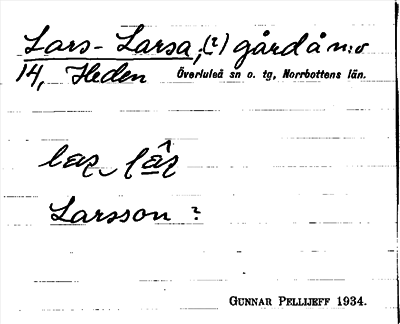 Lars-Larsa, (?) gård å n:o
14, Heden Överluleå sn o. tg, Norrbottens län.
Larsson ?
GUNNAR PELLIJEFF 1934.